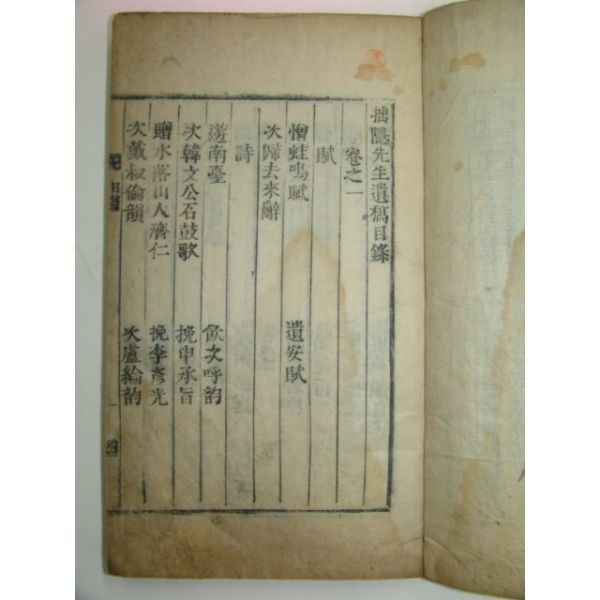 拙隱先生遺稿目錄
卷之一
賦
憎蛙鳴賦 遣安賦
次歸去來辭
詩
遊南臺 飮次呼韵
次韓文公石鼓歌 挽申承旨
贈水落山人濟仁 挽李彥光
次戴叔倫韻 次盧綸韵
目錄
一